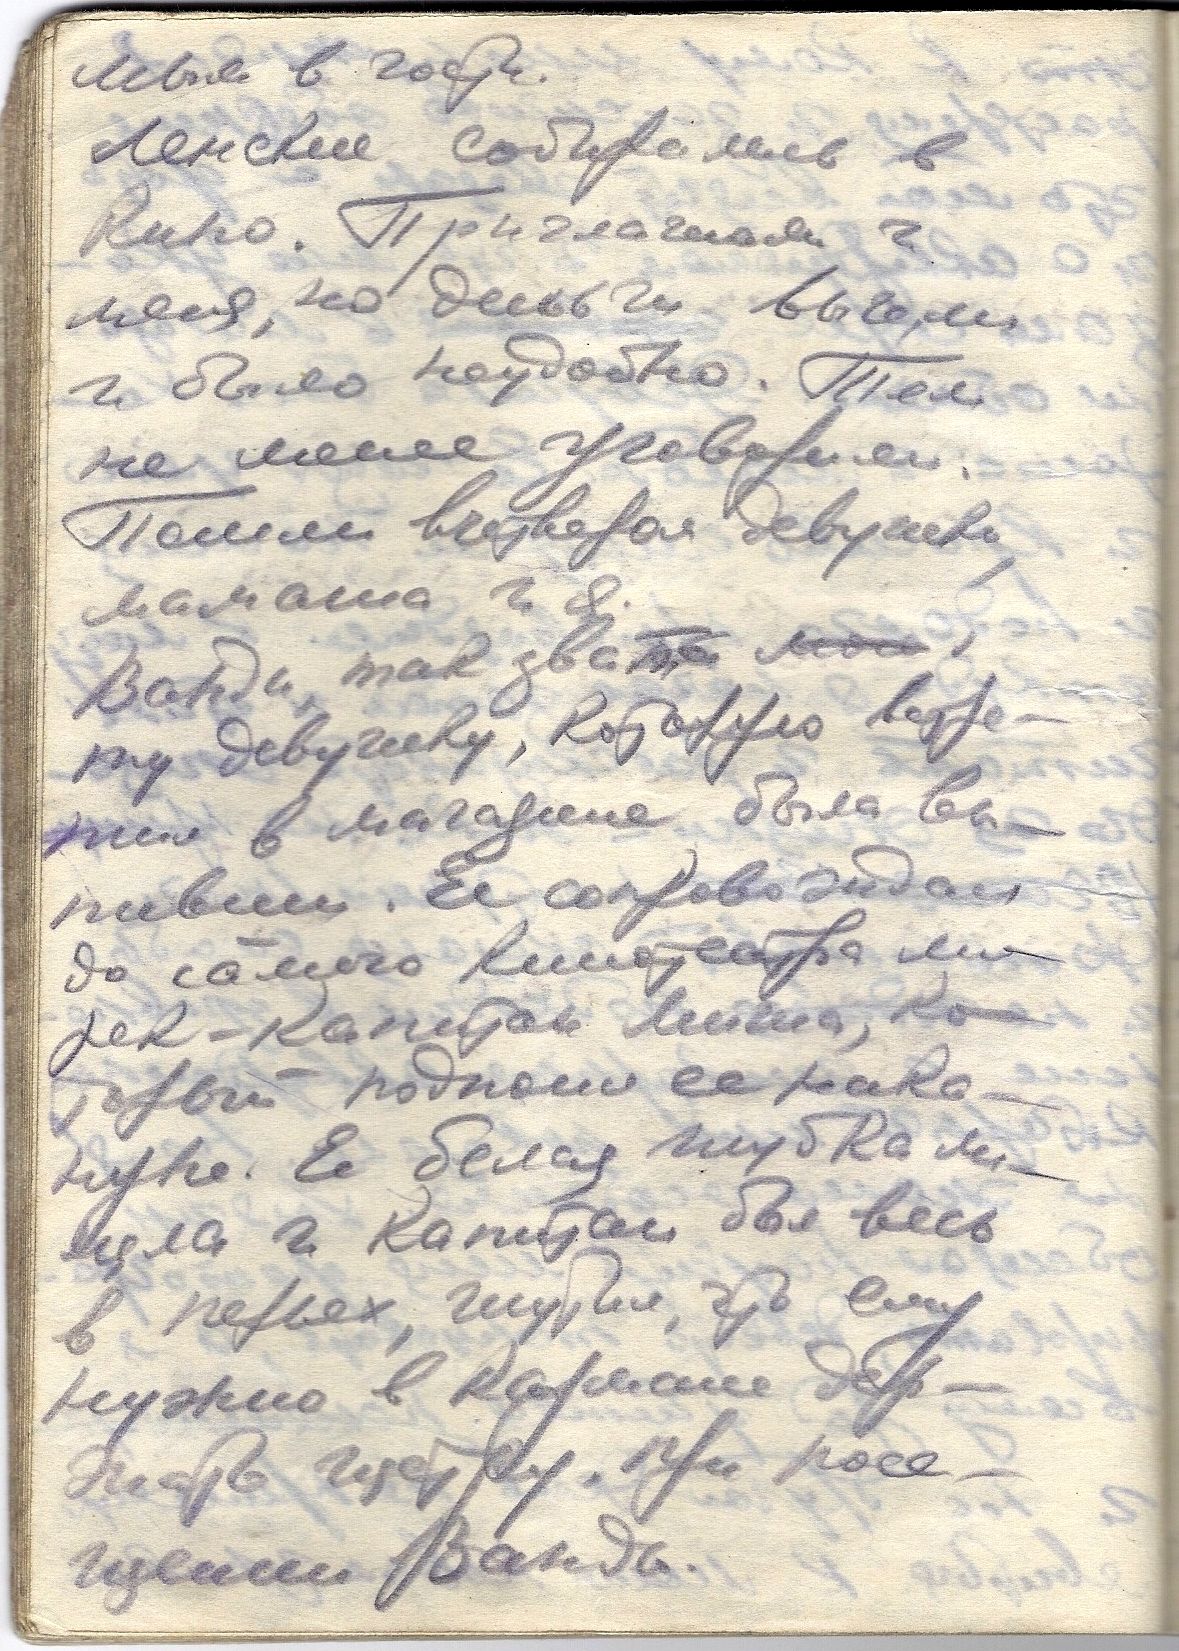 мыл в гости.
Ленские собирались в
кино. Приглашали и
меня, но деньги вышли
и было неудобно. Тем
не менее уговорили.
Пошли вчетвером девушки,
мамаша и я.
Ванда, так звать мою
ту девушку, которую встре-
тил в магазине была вы-
пивши. Ее сопровождал
до самого кинотеатра мо-
ряк-капитан Миша, ко-
торый подпоил ее нака-
нуне. Ее белая шубка ли-
цяла и капитан был весь
в перьях, шутил, что ему
нужно в кармане дер-
жать щетку при посе-
щении Ванды.